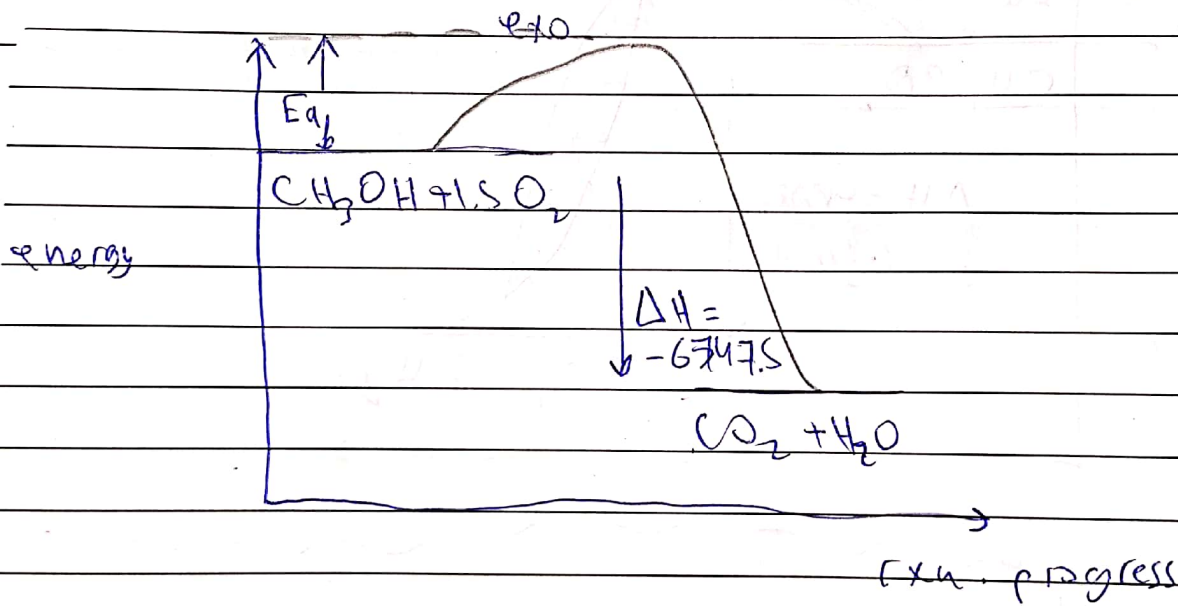 exo
Ea
CH₃OH + 1.5 O₂
energy
ΔH =
-67475
CO₂ + H₂O
rxn. progress